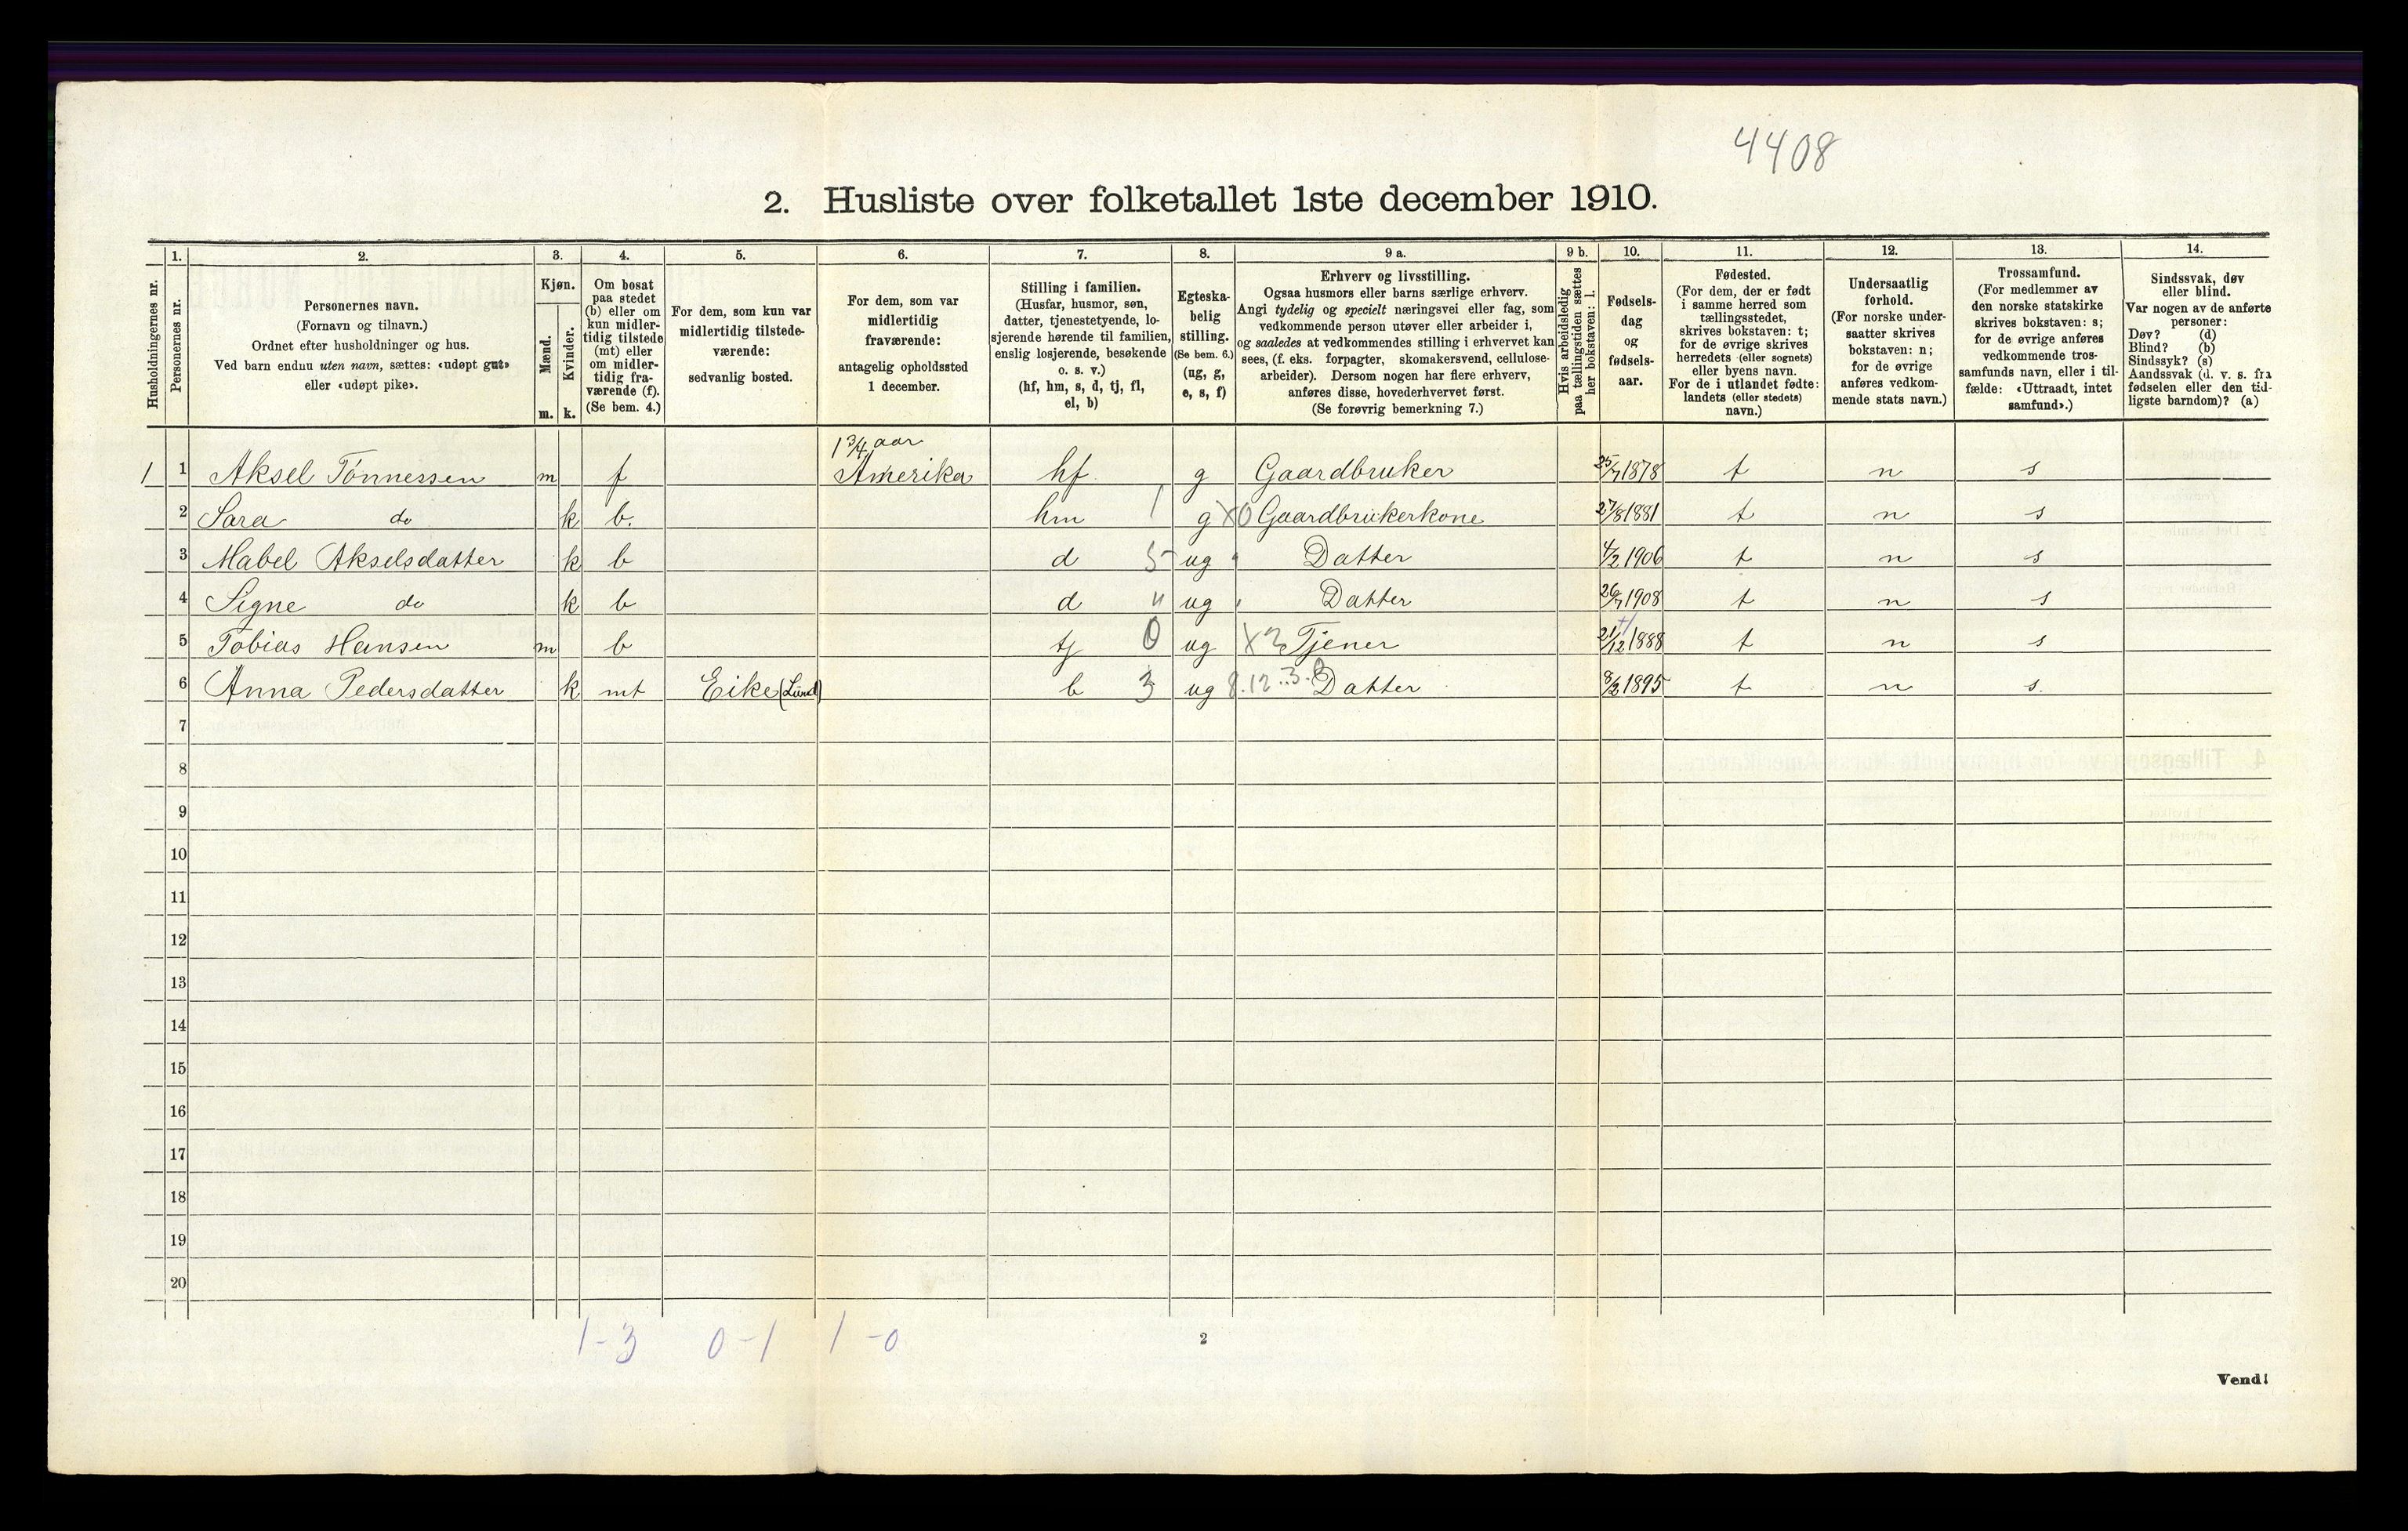 4408
2. Husliste over folketallet 1ste december 1910.
1. 2. 3. 4. 5. 6. 7. 8. 9 a. 9 b. 10. 11. 12. 13. 14.
Husholdningernes nr.
Personernes nr.
Personernes navn.
(Fornavn og tilnavn.)
Ordnet efter husholdninger og hus.
Ved barn endnu uten navn, sættes: «udøpt gut»
eller «udøpt pike».
Kjøn.
Mænd.
Kvinder.
m. k.
Om bosat
paa stedet
(b) eller om
kun midler-
tidig tilstede
(mt) eller
om midler-
tidig fra-
værende (f).
(Se bem. 4.)
For dem, som kun var
midlertidig tilstede-
værende:
sedvanlig bosted.
For dem, som var
midlertidig
fraværende:
antagelig opholdssted
1 december.
Stilling i familien.
(Husfar, husmor, søn,
datter, tjenestetyende, lo-
sjerende hørende til familien,
enslig losjerende, besøkende
o. s. v.)
(hf, hm, s, d, tj, fl,
el, b)
Egteska-
belig
stilling.
(Se bem. 6.)
(ug, g,
e, s, f)
Erhverv og livsstilling.
Ogsaa husmors eller barns særlige erhverv.
Angi tydelig og specielt næringsvei eller fag, som
vedkommende person utøver eller arbeider i,
og saaledes at vedkommendes stilling i erhvervet kan
sees, (f. eks. forpagter, skomakersvend, cellulose-
arbeider). Dersom nogen har flere erhverv,
anføres disse, hovederhvervet først.
(Se forøvrig bemerkning 7.)
Hvis arbeidsledig
paa tællingstiden sættes
her bokstaven: l.
Fødsels-
dag
og
fødsels-
aar.
Fødested.
(For dem, der er født
i samme herred som
tællingsstedet,
skrives bokstaven: t;
for de øvrige skrives
herredets (eller sognets)
eller byens navn.
For de i utlandet fødte:
landets (eller stedets)
navn.)
Undersaatlig
forhold.
(For norske under-
saatter skrives
bokstaven: n;
for de øvrige
anføres vedkom-
mende stats navn.)
Trossamfund.
(For medlemmer av
den norske statskirke
skrives bokstaven: s;
for de øvrige anføres
vedkommende tros-
samfunds navn, eller i til-
fælde: «Uttraadt, intet
samfund».)
Sindssvak, døv
eller blind.
Var nogen av de anførte
personer:
Døv? (d)
Blind? (b)
Sindssyk? (s)
Aandssvak (d. v. s. fra
fødselen eller den tid-
ligste barndom)? (a)
1 3/4 aar
1 1 Aksel Tønnessen m f Amerika hf. g Gaardbruker 25/7 1878 t n s
2 Sara do k b. hm 1 g X0 Gaardbrukerkone 27/8 1881 t n s
3 Mabel Akselsdatter k b d 5 ug Datter 4/2 1906 t n s
4 Signe do k b d " ug Datter 26/7 1908 t n s
5 Tobias Hansen m b tj 0 ug X2 Tjener 21/12 1888 t n s
6 Anna Pedersdatter k mt Eike (Lund) b 3 ug 8.12..3. Datter 8/2 1895 t n s.
7
8
9
10
11
12
13
14
15
16
17
18
19
20
1-3 0-1 1-0
2
Vend!